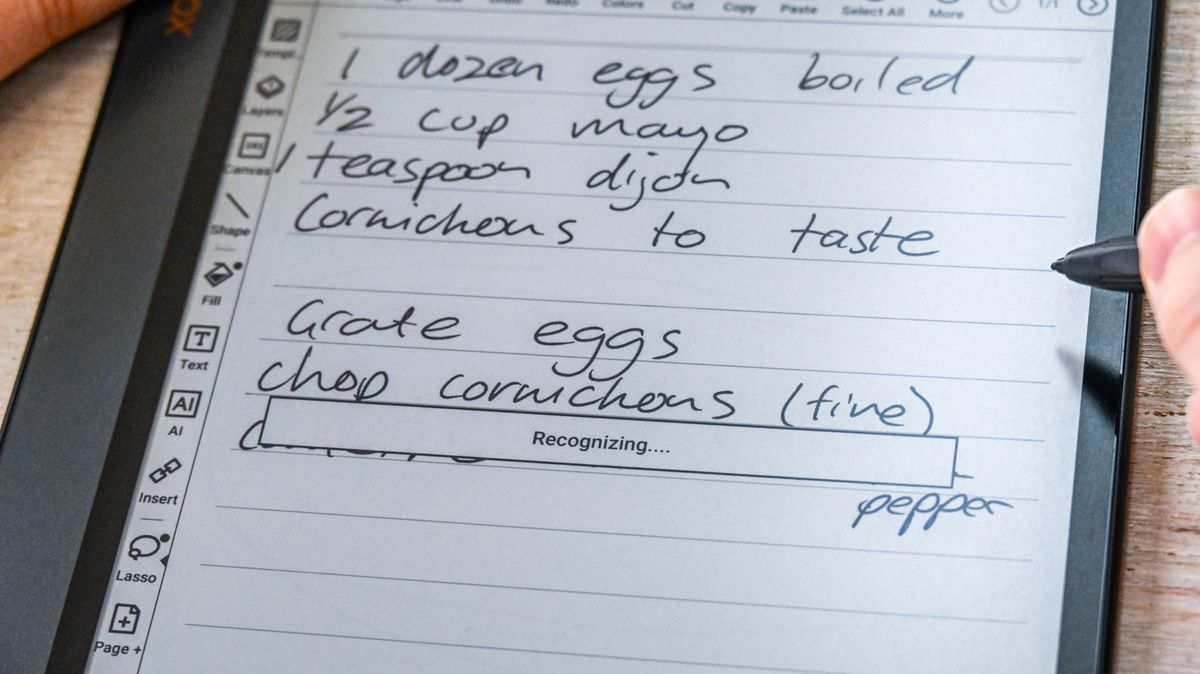 Undo Redo Colors Cut Copy Paste Select All More 1/1
1 dozen eggs boiled
1/2 cup mayo
1 teaspoon dijon
Cornichons to taste
Grate eggs
chop cornichons (fine)
Recognizing....
pepper
Layers
Canvas
Shape
Fill
T
Text
AI
AI
Insert
Lasso
Page +